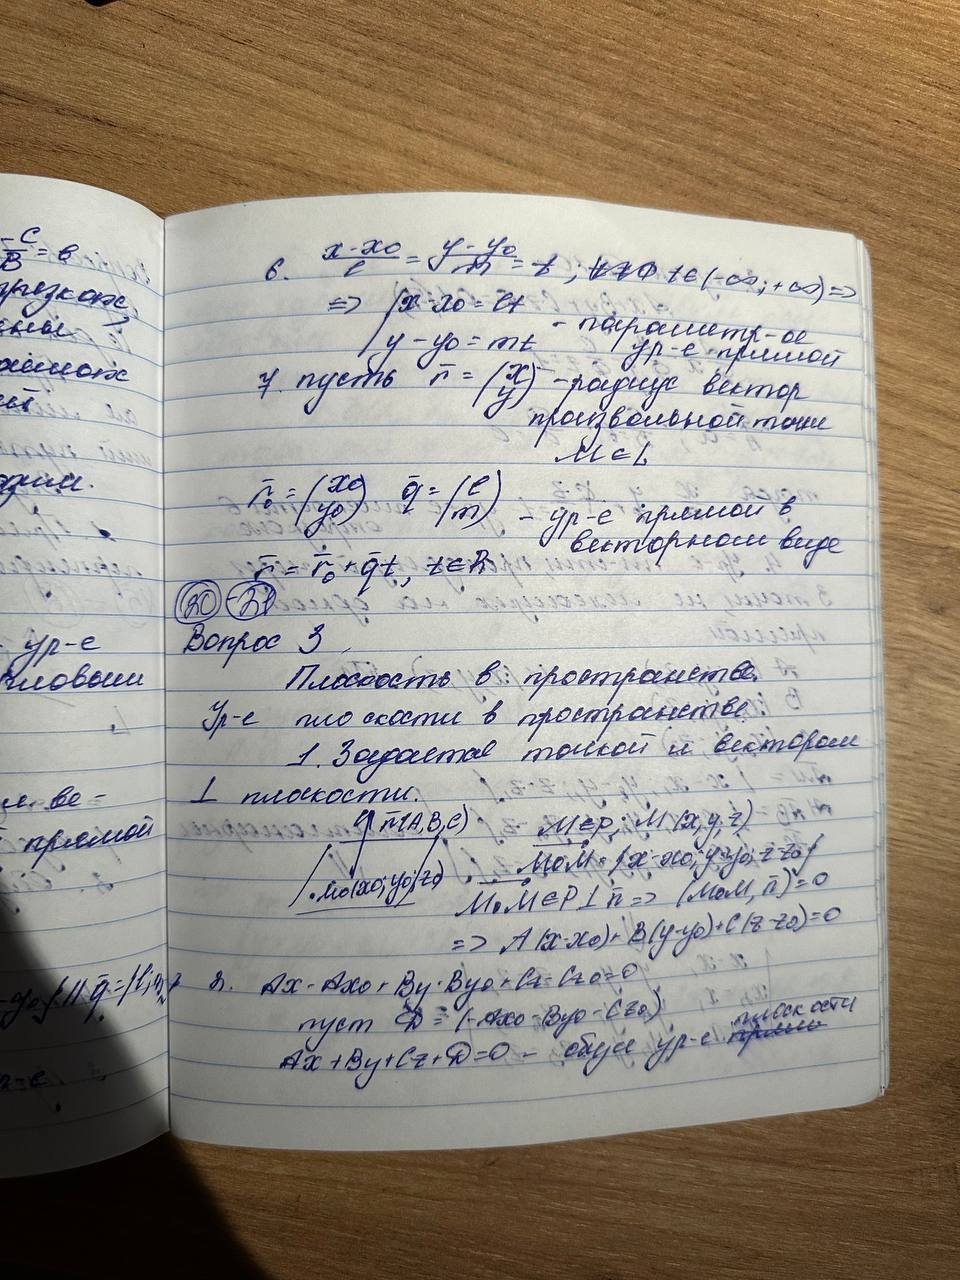 -C/B = в
ур-е
прямой
6. (x-x₀)/ℓ = (y-y₀)/m = t, t∈(-∞; +∞) =>
=> { x-x₀ = ℓt
- параметр-ое
y-y₀ = mt
ур-е прямой
7. пусть r̄ = (x y) - радиус вектор
произвольной точки
M∈L
r̄₀ = (x₀ y₀) q̄ = (ℓ m)
- ур-е прямой в
векторном виде
r̄ = r̄₀ + q̄t, t∈R
20 - 21
Вопрос 3
Плоскость в пространстве.
Ур-е плоскости в пространстве:
1. Задаётся точкой и вектором
⊥ плоскости.
n̄(A,B,C)
M∈P, M(x,y,z)
M₀M = {x-x₀; y-y₀; z-z₀}
M₀(x₀; y₀; z₀)
M₀M∈P ⊥ n̄ => (M₀M, n̄) = 0
=> A(x-x₀) + B(y-y₀) + C(z-z₀) = 0
2. Ax - Ax₀ + By - By₀ + Cz - Cz₀ = 0
пуст D = (-Ax₀ - By₀ - Cz₀)
плоскости
Ax + By + Cz + D = 0 - общее ур-е